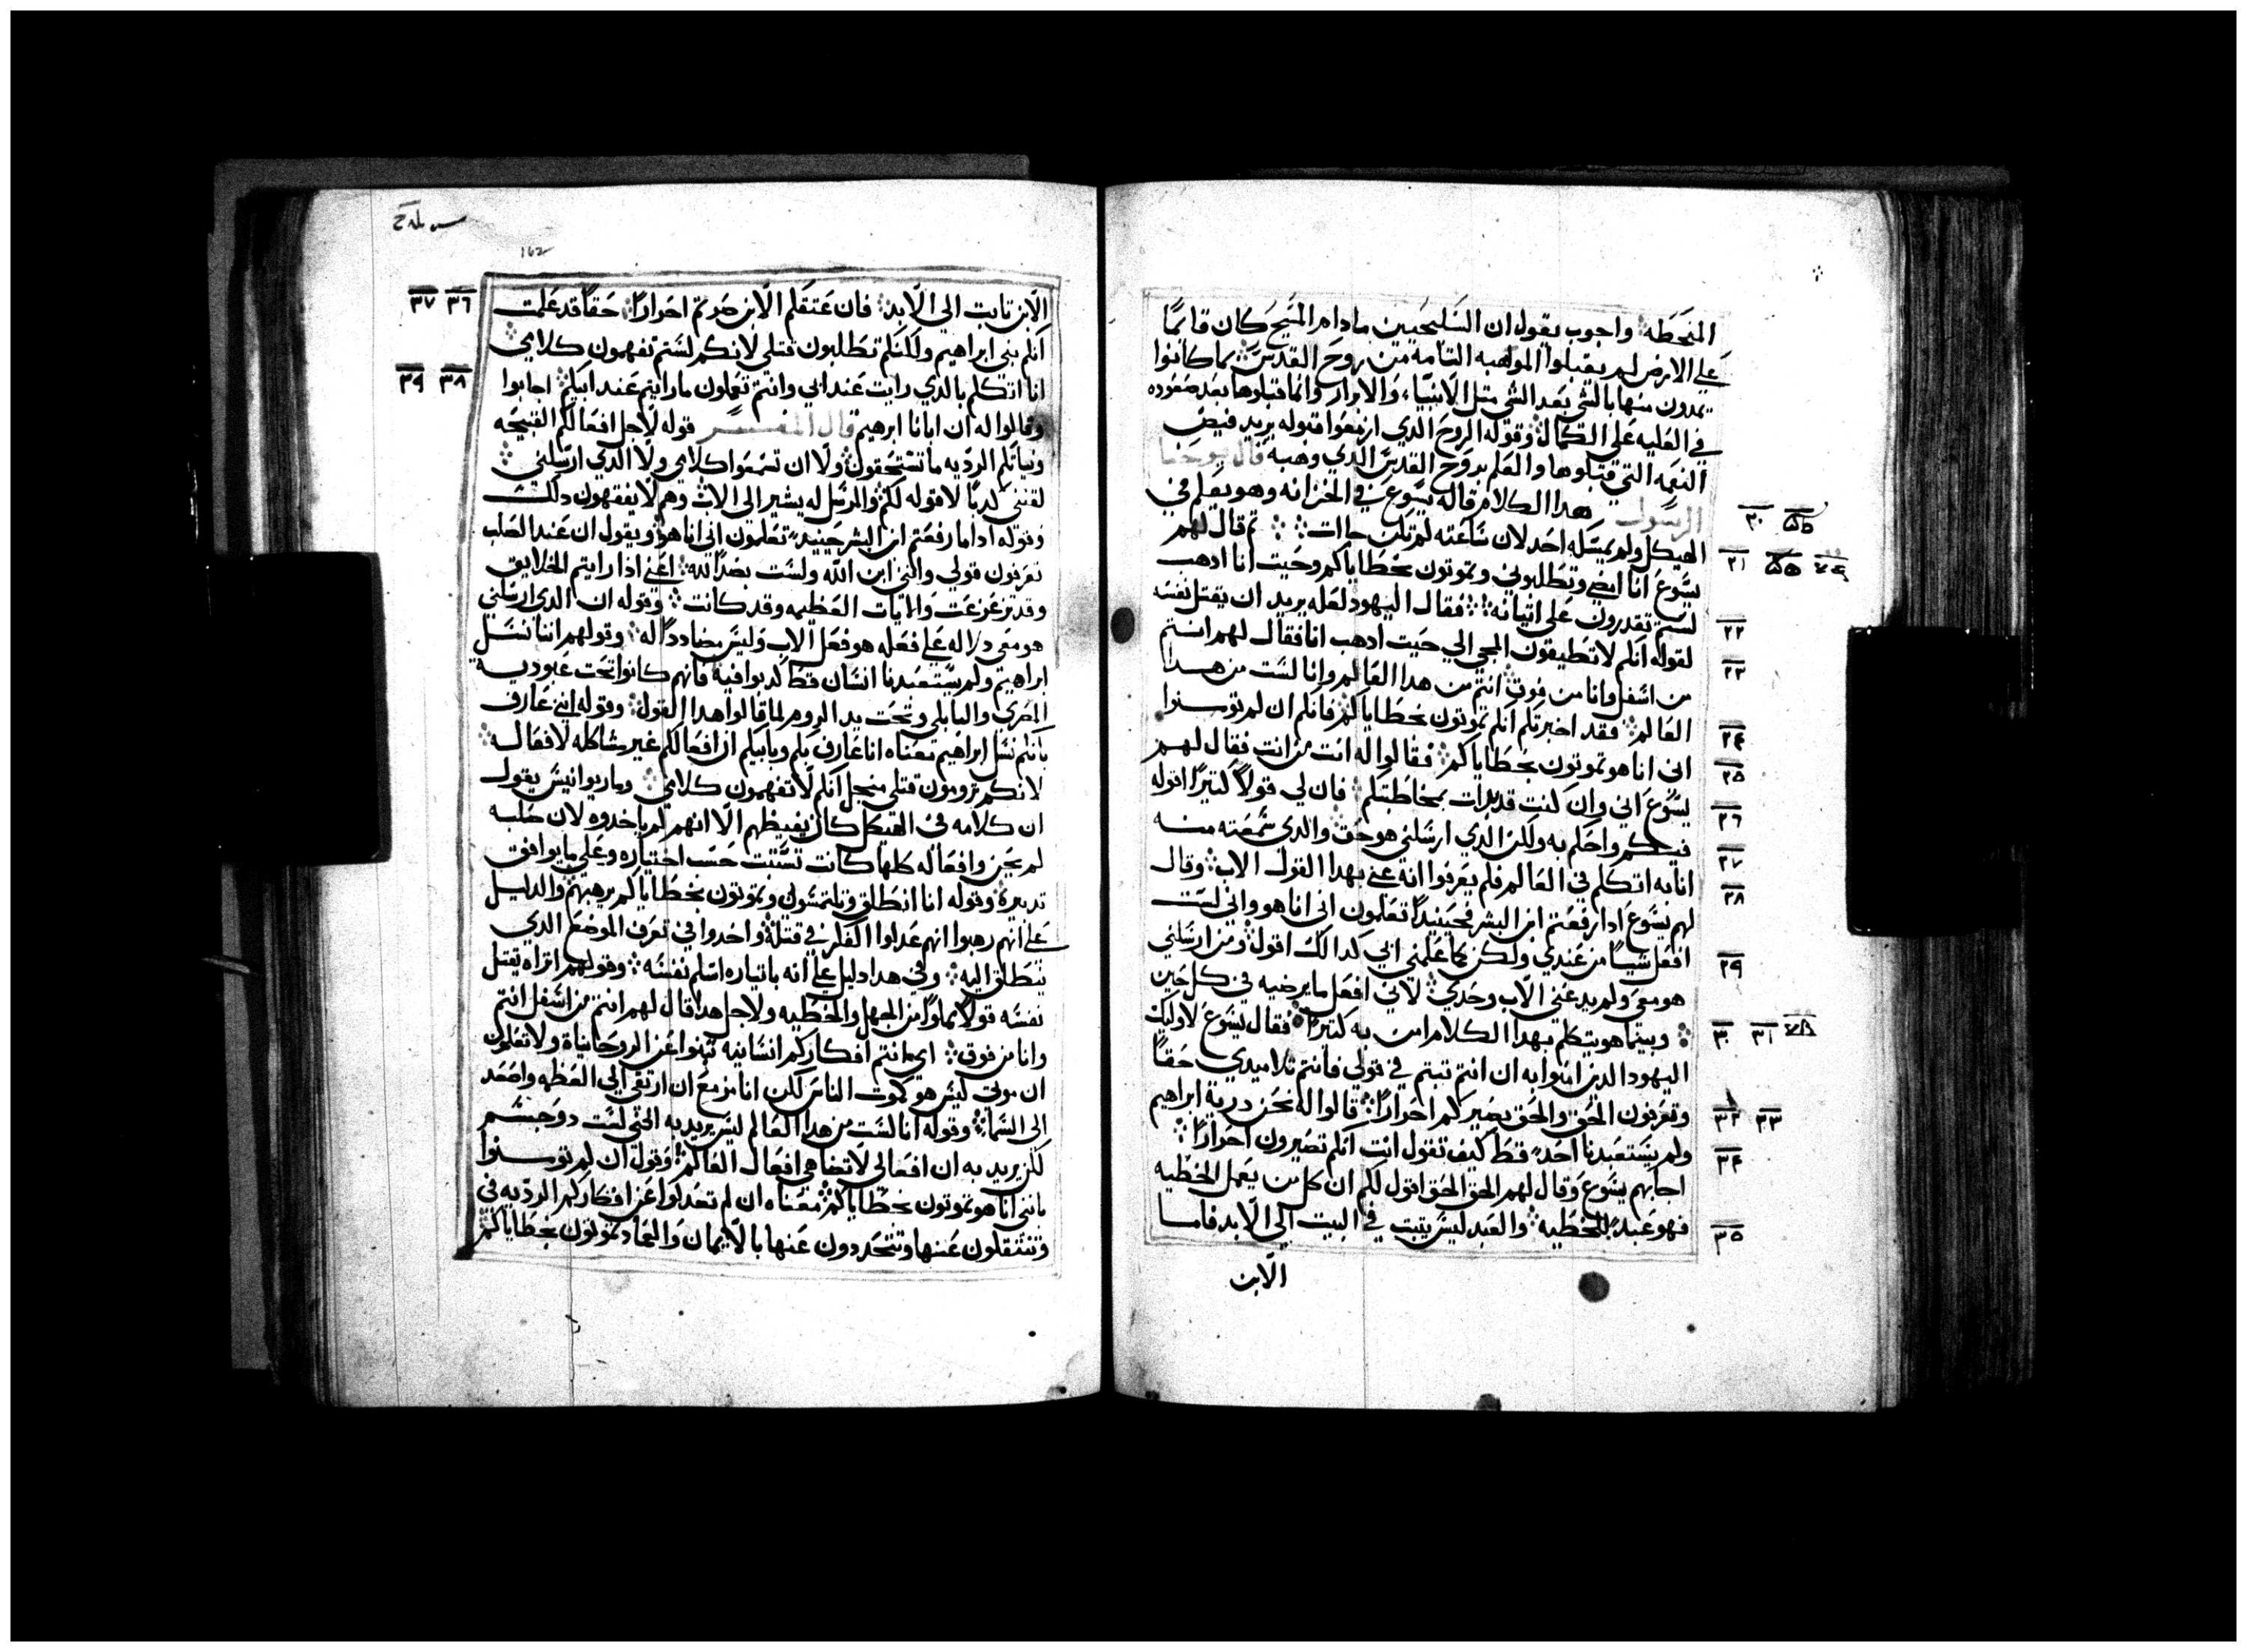 المنحطه واجوب يقول ان السليحيين مادام المسيح كان قائمًا
على الارض لم يقبلوا المواهبه التامه من روح القدس كما كانوا
يمدون منها بالشي بعد الشي متل الانبياء والابرار وانما قبلوها بعد صعوده
في العليه على الكمال وقوله الروح الدي ازمعوا قبوله يريد فيض
النعمه التي قبلوها والعلم بروح القدس الدي وهبه قال يوحنا
الرسول هدا الكلام قاله يسوع في الخزانه وهو يعلم في
٢٠
الهيكل ولم يمسكه احد لان ساعته لم تكن جاات تم قال لهم
٢١
يسوع انا امضي وتطلبوني وتموتون بخطاياكم وحيت انا ادهب
لستم تقدرون على اتيانه فقال اليهود لعله يريد ان يقتل نفسه
٢٢
لقوله انكم لا تطيقون المجي الي حيت ادهب انا فقال لهم انتم
٢٣
من اسفل وانا من فوق انتم من هدا العالم وانا لست من هدا
العالم فقد اخبرتكم انكم تموتون بخطاياكم فانكم ان لم تومنوا
٢٤
اني انا هو تموتون بخطاياكم فقالوا له انت من انت فقال لهم
٢٥
يسوع اني وان كنت قد بدات بمخاطبتكم فان لي قولاً كتيرًا اقوله
٢٦
فيكم واحكم به ولكن الدي ارسلني هو حق والدي سمعته منه
٢٧
انا به اتكلم في العالم فلم يعرفوا انه عني بهدا القول الاب وقال
٢٨
لهم يسوع ادا رفعتم ابن البشر فحينيدًا تعلمون اني انا هو واني لست
افعل شيئًا من عندي ولكن كما علمني ابي كدالك اقول ومن ارسلني
٢٩
هو معي ولم يدعني الاب وحدي لاني افعل ما يرضيه في كل حين
وبينما هو يتكلم بهدا الكلام امن به كتير فقال يسوع لاوليك
٣٠ ٣١
اليهود الدين امنوا به ان انتم تبتم في قولي فانتم تلاميدي حقًا
وتعرفون الحق والحق يصيركم احرارًا قالوا له نحن درية ابراهيم
٣٢ ٣٣
ولم يستعبدنا احد قط كيف تقول انت انكم تصيرون احرارًا
٣٤
اجابهم يسوع وقال لهم الحق الحق اقول لكم ان كل من يعمل الخطيه
فهو عبد للخطيه والعبد ليس يتبت في البيت الي الابد فاما
٣٥
الابن
162
الابن تابت الي الابد فان عتقكم الابن صرتم احرارًا حقًا قد علمت
٣٦ ٣٧
انكم بني ابراهيم ولكنكم تطلبون قتلي لانكم لستم تفهمون كلامي
انا اتكلم بالدي رايت عند ابي وانتم تعملون ما رايتم عند ابيكم اجابوا
٣٨ ٣٩
وقالوا له ان ابانا ابرهيم قال المفسر قوله لاجل افعالكم القبيحه
ونياتكم الرديه ما تستحقون ولا ان تسمعوا كلامي ولا الدي ارسلني
لا قوله لكم والمرسل له يشير الى الاب وهم لا يفقهون دلك
وقوله ادا ما رفعتم ابن البشر حينيد تعلمون اني انا هو ويقول ان عند الصلب
تعرفون قولي وانني ابن الله ولست بضد الله اعني اذا رايتم الخلايق
وقد تزعزعت والايات العظيمه وقد كانت وقوله ان الدي ارسلني
هو معي دلاله على فعله هو فعل الاب وليس مضاددًا له وقولهم اننا نسل
ابراهيم ولم يستعبدنا انسان قط كدبوا فيه فانهم كانوا تحت عبودية
المصري والبابلي وتحت يد الروم لما قالوا هدا القول وقوله انني عارف
بانكم نسل ابراهيم معناه انا عارف بكم وبابيكم ان افعالكم غير مشاكله لافعاله
لانكم ترومون قتلي منجل انكم لا تفهمون كلامي وماريوانيس يقول
ان كلامه في الهيكل كان يغيظهم الا انهم لم ياخدوه لان صلبه
لم يحن وافعاله كلها كانت حسب اختياره وعلى ما يوافق
تدبيره وقوله انا انطلق وتلتمسوني وتموتون بخطاياكم يرهبهم والدليل
على انهم رهبوا انهم عدلوا الفكر في قتله واخدوا في تعرف الموضع الدي
ينطلق اليه وفي هدا دليل على انه باتياره اسلم نفسه وقولهم اتراه يقتل
نفسه قولاً مملوًا من الجهل والخطيه ولاجل هدا قال لهم انتم من اسفل انتم
وانا من فوق اي انتم افكاركم انسانيه تنبوا عن الروحانياة ولا تعلمون
ان موتي ليس هو كموت الناس لكن انا مزمع ان ارتقي الي العظمه واصعد
الى السما وقوله انا لست من هدا العالم ليس يريد به انني لست دو جسم
لكن يريد به ان افعالي لا تضاهي افعال العالم وقوله ان لم تومنوا
بانني انا هو تموتون بخطاياكم معناه ان لم تعدلوا عن افكاركم الرديه في
وتنتقلون عنها وتتجددون عنها بالايمان والعماد تموتون بخطاياكم